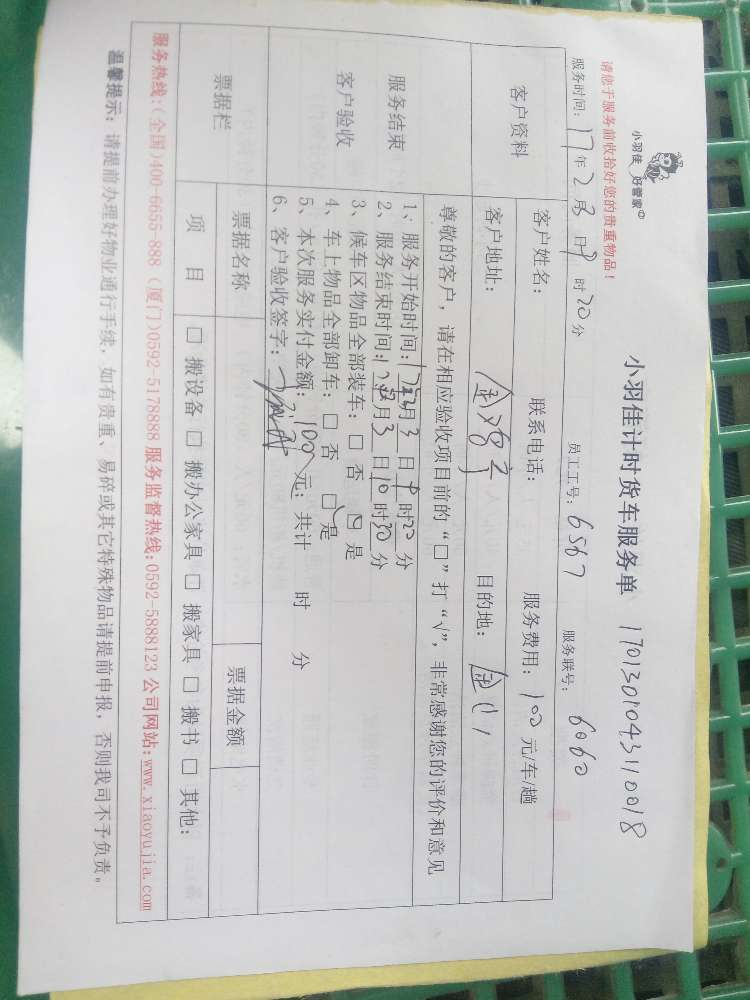 小羽佳 好管家
小羽佳计时货车服务单 1701301043110018
请您于服务前收拾好您的贵重物品!
服务时间: 17 年 2 月 3 日 9 时 20 分 员工工号: 6567 服务联号: 6060
客户资料
客户姓名: 联系电话: 服务费用: 100 元/车/趟
客户地址: 目的地:
尊敬的客户，请在相应验收项目前的“□”打“√”，非常感谢您的评价和意见
服务结束
客户验收
1、服务开始时间: 17年2月3日9时20分
2、服务结束时间: 17年2月3日10时30分
3、候车区物品全部装车: □ 否 ☑ 是
4、车上物品全部卸车: □ 否 ☑ 是
5、本次服务实付金额: 100 元; 共计 时 分
6、客户验收签字:
票据栏
票据名称 票据金额
项 目 □ 搬设备 □ 搬办公家具 □ 搬家具 □ 搬书 □ 其他:
服务热线:(全国)400-6655-888 (厦门)0592-5178888 服务监督热线:0592-5888123 公司网站:www.xiaoyujia.com
温馨提示: 请提前办理好物业通行手续，如有贵重、易碎或其它特殊物品请提前申报，否则我司不予负责。